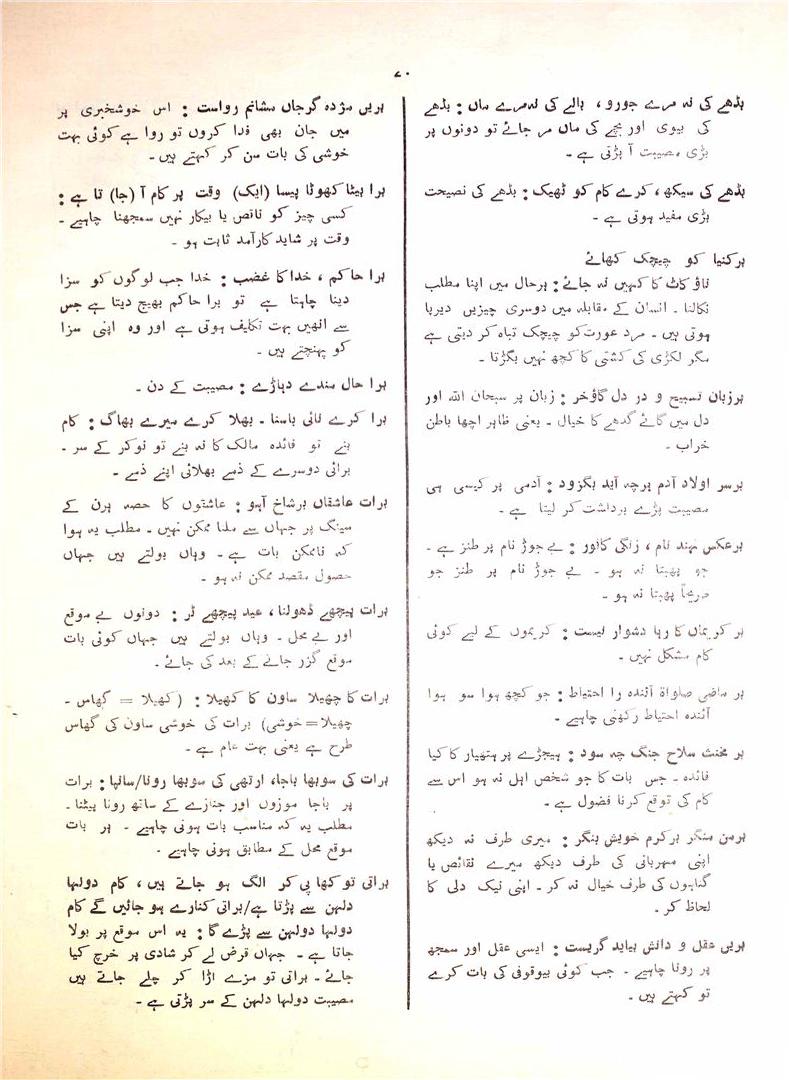 ۷۰
بڈھے کی نہ مرے جورو، بالے کی نہ مرے ماں : بڈھے
کی بیوی اور بچے کی ماں مر جائے تو دونوں پر
بڑی مصیبت آ پڑتی ہے ۔
بڈھے کی سیکھ، کرے کام کو ٹھیک : بڈھے کی نصیحت
بڑی مفید ہوتی ہے ۔
ہر کنیا کو چیچک کھائے
ناؤ کاٹ کا کہیں نہ جائے : ہر حال میں اپنا مطلب
نکالنا ۔ انسان کے مقابلہ میں دوسری چیزیں دیرپا
ہوتی ہیں ۔ مرد عورت کو چیچک تباہ کر دیتی ہے
مگر لکڑی کی کشتی کا کچھ نہیں بگڑتا ۔
بر زبان تسبیح و در دل گاؤخر : زبان پر سبحان اللہ اور
دل میں گائے گدھے کا خیال ۔ یعنی ظاہر اچھا باطن
خراب ۔
بر سر اولاد آدم ہر چہ آید بگزود : آدمی پر کیسی ہی
مصیبت پڑے برداشت کر لیتا ہے ۔
برعکس نہند نام ، زنگی کافور : بے جوڑ نام پر طنز ہے ۔
جو پھبتا نہ ہو ۔ بے جوڑ نام پر طنز جو
صریحاً پھبتا نہ ہو ۔
بر کریماں کارہا دشوار نیست : کریموں کے لیے کوئی
کام مشکل نہیں ۔
بر ماضی صلواۃ آئندہ را احتیاط : جو کچھ ہوا سو ہوا
آئندہ احتیاط رکھنی چاہیے ۔
بر مخنث سلاح جنگ چہ سود : ہیجڑے پر ہتھیار کا کیا
فائدہ ۔ جس بات کا جو شخص اہل نہ ہو اس سے
کام کی توقع کرنا فضول ہے ۔
برمن منگر برکرم خویش بنگر : میری طرف نہ دیکھ
اپنی مہربانی کی طرف دیکھ میرے نقائص یا
گناہوں کی طرف خیال نہ کر ۔ اپنی نیک دلی کا
لحاظ کر ۔
بریں عقل و دانش بباید گریست : ایسی عقل اور سمجھ
پر رونا چاہیے ۔ جب کوئی بیوقوفی کی بات کرے
تو کہتے ہیں ۔
بریں مژدہ گر جاں فشانم رواست : اس خوشخبری پر
میں جان بھی فدا کروں تو روا ہے کوئی بہت
خوشی کی بات سن کر کہتے ہیں ۔
برا بیٹا کھوٹا پیسا (ایک) وقت پر کام آ (جا) تا ہے :
کسی چیز کو ناقص یا بیکار نہیں سمجھنا چاہیے ۔
وقت پر شاید کارآمد ثابت ہو ۔
برا حاکم ، خدا کا غضب : خدا جب لوگوں کو سزا
دینا چاہتا ہے تو برا حاکم بھیج دیتا ہے جس
سے انھیں بہت تکلیف ہوتی ہے اور وہ اپنی سزا
کو پہنچتے ہیں ۔
برا حال مندے دہاڑے : مصیبت کے دن ۔
برا کرے نائی باسنا ۔ بھلا کرے میرے بھاگ : کام
بنے تو فائدہ مالک کا نہ بنے تو نوکر کے سر ۔
برائی دوسرے کے ذمے بھلائی اپنے ذمے ۔
برات عاشقاں برشاخ آہو : عاشقوں کا حصہ ہرن کے
سینگ پر جہاں سے ملنا ممکن نہیں ۔ مطلب یہ ہوا
کہ ناممکن بات ہے ۔ وہاں بولتے ہیں جہاں
حصول مقصد ممکن نہ ہو ۔
برات پیچھے ڈھولنا، عید پیچھے ٹر : دونوں بے موقع
اور بے محل ۔ وہاں بولتے ہیں جہاں کوئی بات
موقع گزر جانے کے بعد کی جائے ۔
برات کا چھیلا ساون کا کھیلا : (کھیلا = گھاس ۔
چھیلا = خوشی) برات کی خوشی ساون کی گھاس
طرح ہے یعنی بہت عام ہے ۔
برات کی سوبھا باجا، ارتھی کی سوبھا رونا/سانپا : برات
پر باجا موزوں اور جنازے کے ساتھ رونا پیٹنا ۔
مطلب یہ کہ مناسب بات ہونی چاہیے ۔ ہر بات
موقع محل کے مطابق ہونی چاہیے ۔
براتی تو کھا پی کر الگ ہو جاتے ہیں ، کام دولہا
دلہن سے پڑتا ہے/براتی کنارے ہو جائیں گے کام
دولہا دولہن سے پڑے گا : یہ اس موقع پر بولا
جاتا ہے ۔ جہاں قرض لے کر شادی پر خرچ کیا
جائے ۔ براتی تو مزے اڑا کر چلے جاتے ہیں
مصیبت دولہا دلہن کے سر پڑتی ہے ۔